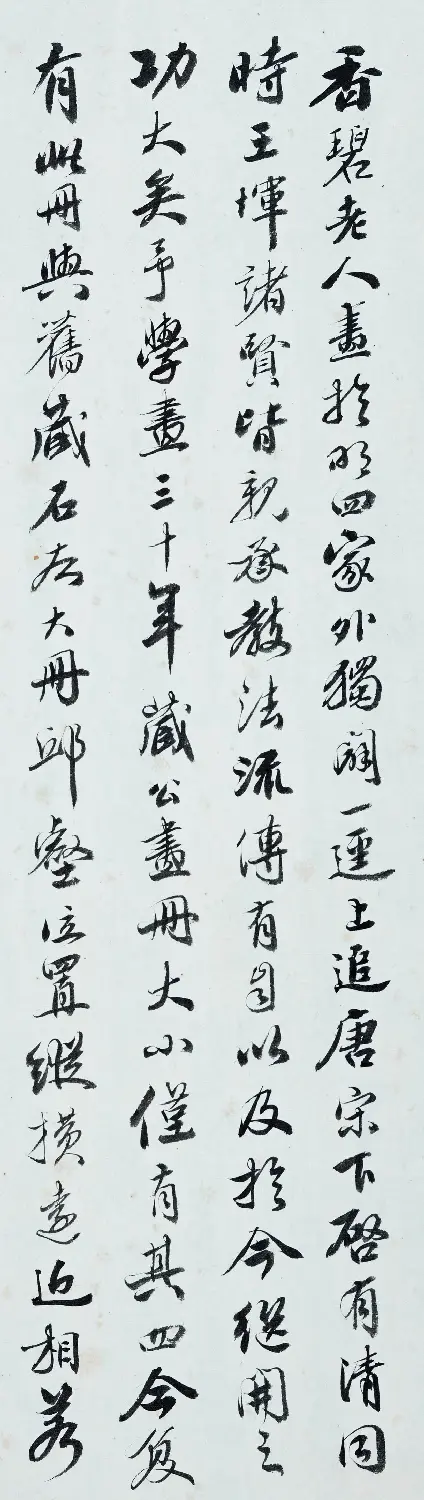 香碧老人畫於明四家外獨闢一逕上追唐宋下啓有清同
時王惲諸賢皆親承教法流傳有自以及於今繼開之
功大矣予學畫三十年藏公畫冊大小僅有其四今復
有此冊與舊藏石大冊邱壑位置縱橫遠近相若